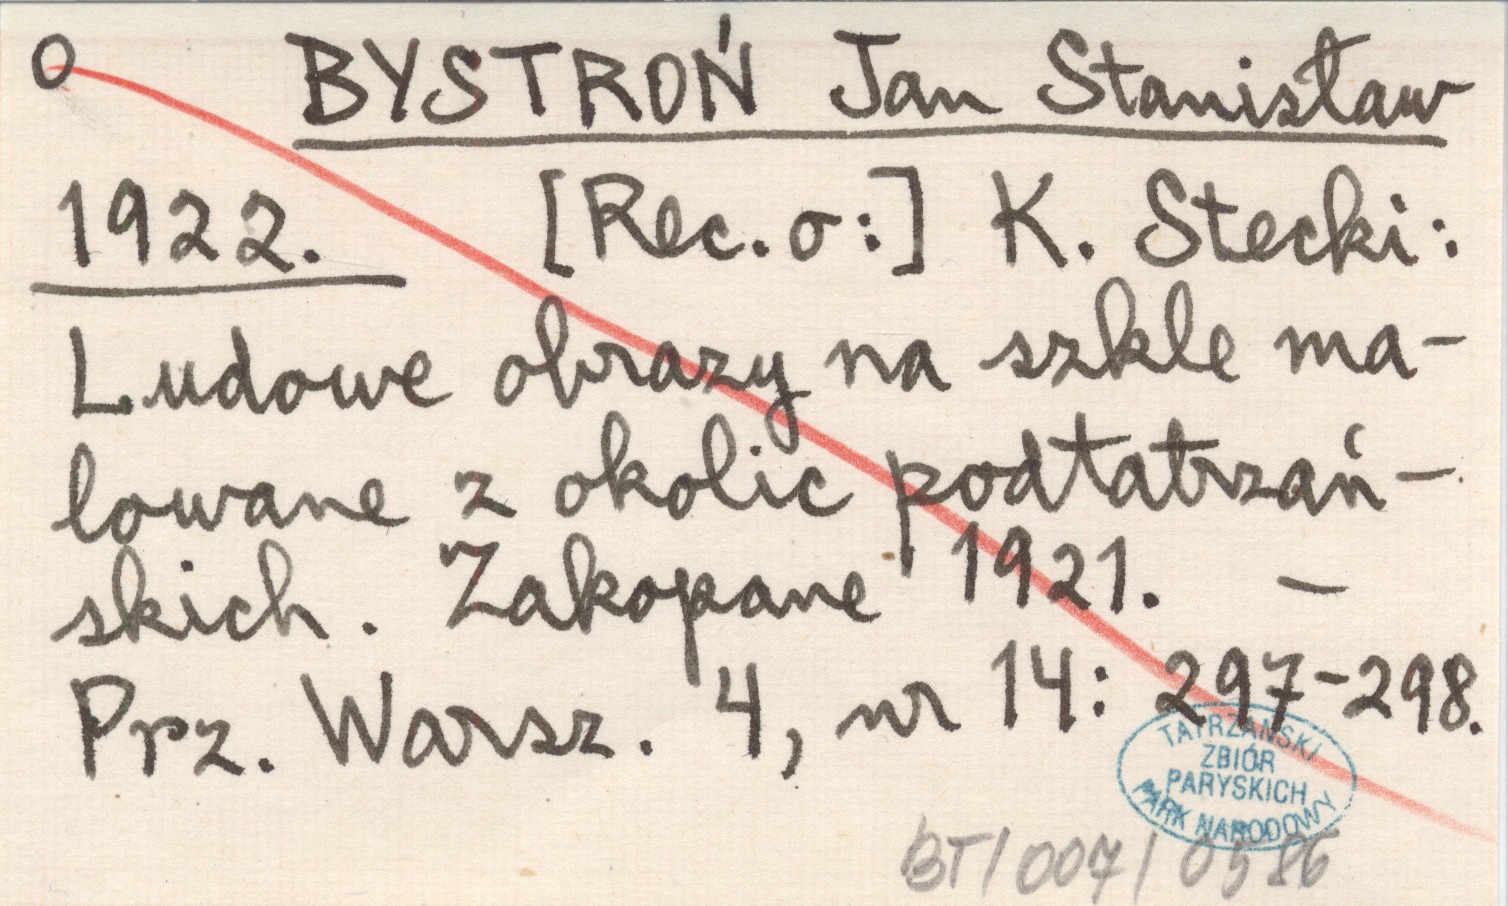 O BYSTROŃ Jan Stanisław
1922. [Rec. o:] K. Stecki:
Ludowe obrazy na szkle ma-
lowane z okolic podtatrzań-
skich. Zakopane 1921. —
Prz. Warsz. 4, nr 14: 297-298.
TATRZAŃSKI
ZBIÓR
PARYSKICH
PARK NARODOWY
BT/007/0586